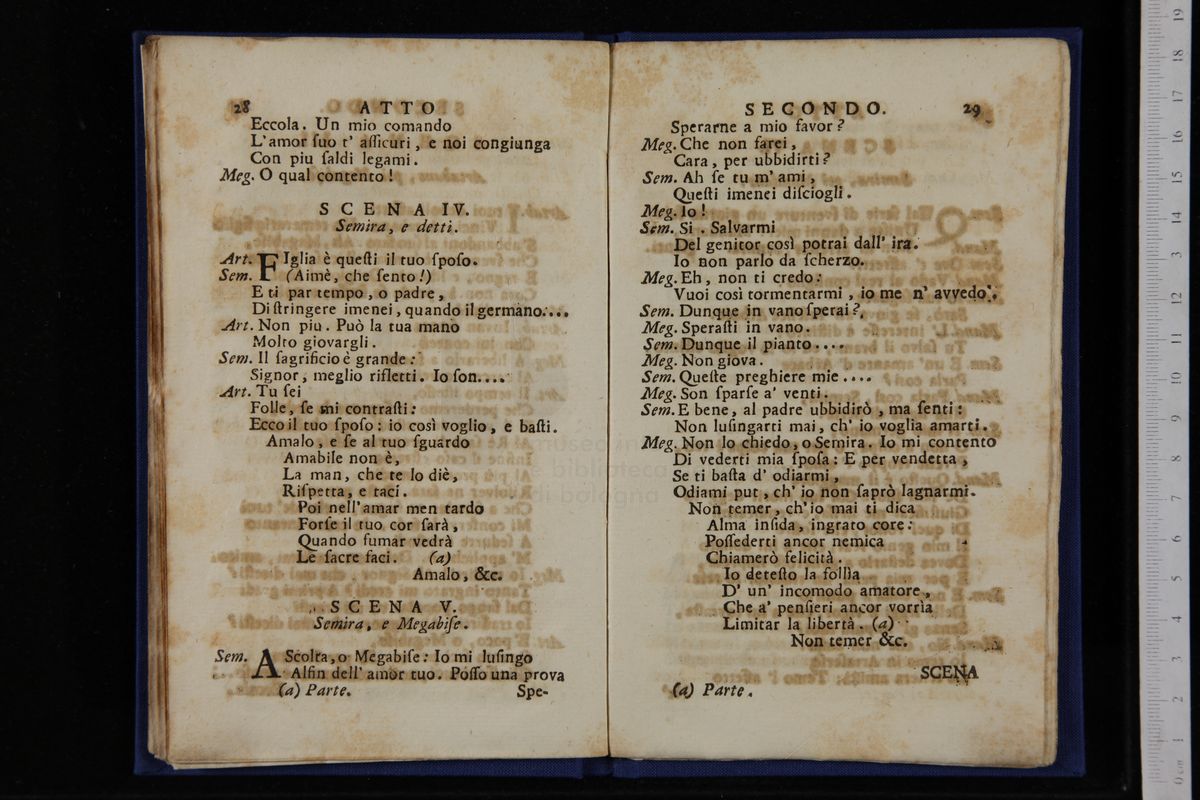 28 ATTO
Eccola. Un mio comando
L'amor ſuo t' aſſicuri, e noi congiunga
Con piu ſaldi legami.
Meg. O qual contento!
SCENA IV.
Semira, e detti.
Art. FIglia è queſti il tuo ſpoſo.
Sem. (Aimè, che ſento!)
E ti par tempo, o padre,
Diſtringere imenei, quando il germano....
Art. Non piu. Può la tua mano
Molto giovargli.
Sem. Il ſagrificio è grande:
Signor, meglio rifletti. Io ſon....
Art. Tu ſei
Folle, ſe mi contraſti:
Ecco il tuo ſpoſo: io così voglio, e baſti.
Amalo, e ſe al tuo ſguardo
Amabile non è,
La man, che te lo diè,
Riſpetta, e taci.
Poi nell'amar men tardo
Forſe il tuo cor ſarà,
Quando fumar vedrà
Le ſacre faci. (a)
Amalo, &c.
SCENA V.
Semira, e Megabiſe.
Sem. AScolta, o Megabiſe: Io mi luſingo
Alfin dell' amor tuo. Poſſo una prova
(a) Parte. Spe-
SECONDO. 29
Sperarne a mio favor?
Meg. Che non farei,
Cara, per ubbidirti?
Sem. Ah ſe tu m' ami,
Queſti imenei diſciogli.
Meg. Io!
Sem. Si. Salvarmi
Del genitor così potrai dall' ira.
Io non parlo da ſcherzo.
Meg. Eh, non ti credo:
Vuoi così tormentarmi, io me n' avvedo.
Sem. Dunque in vano ſperai?
Meg. Speraſti in vano.
Sem. Dunque il pianto....
Meg. Non giova.
Sem. Queſte preghiere mie....
Meg. Son ſparſe a' venti.
Sem. E bene, al padre ubbidirò, ma ſenti:
Non luſingarti mai, ch' io voglia amarti.
Meg. Non lo chiedo, o Semira. Io mi contento
Di vederti mia ſpoſa: E per vendetta,
Se ti baſta d' odiarmi,
Odiami put, ch' io non ſaprò lagnarmi.
Non temer, ch'io mai ti dica
Alma infida, ingrato core:
Poſſederti ancor nemica
Chiamerò felicità.
Io deteſto la follìa
D' un' incomodo amatore,
Che a' penſieri ancor vorrìa
Limitar la libertà. (a)
Non temer &c.
SCENA
(a) Parte.
museo int
e biblioteca
di bologna